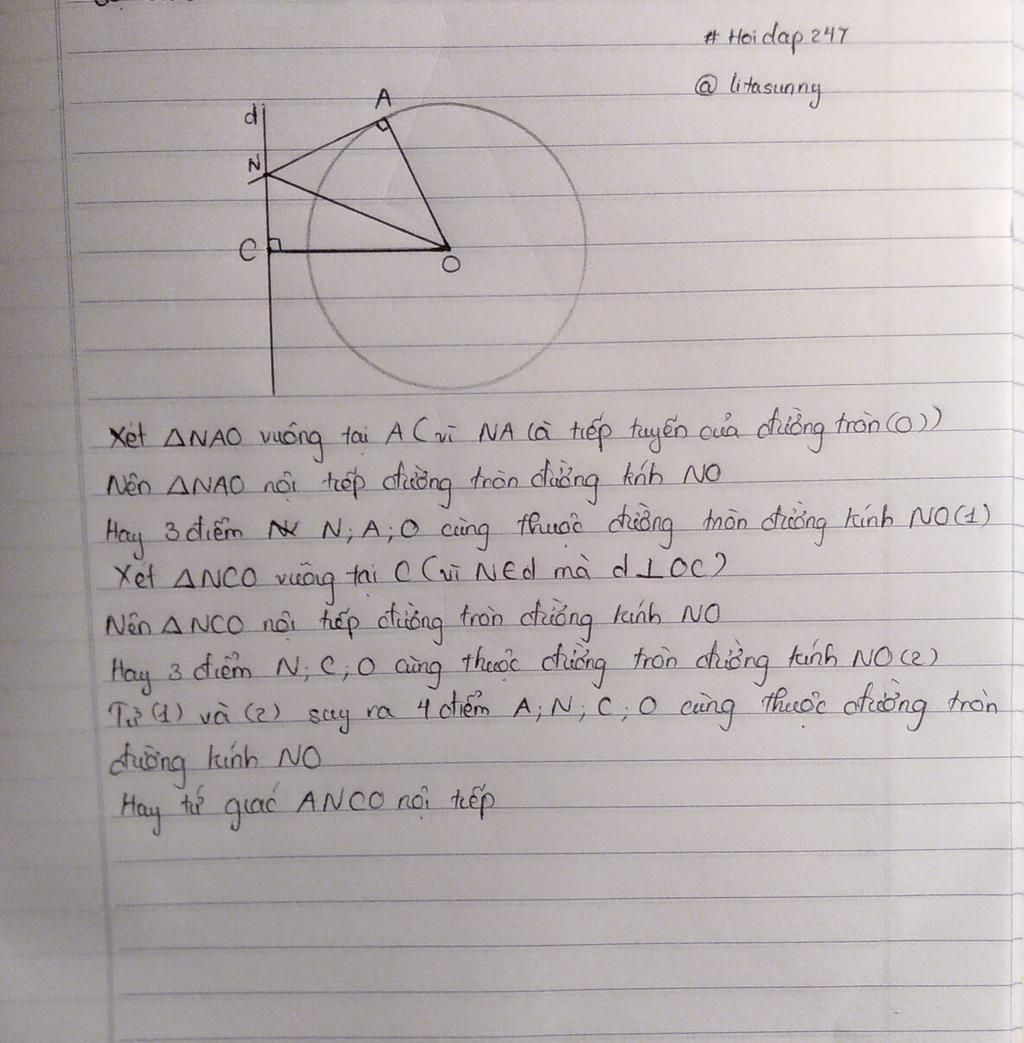 # Hoidap247
@ litasunny
A
d
N
C
O
Xét ΔNAO vuông tại A (vì NA là tiếp tuyến của đường tròn (O))
Nên ΔNAO nội tiếp đường tròn đường kính NO
Hay 3 điểm N; A; O cùng thuộc đường tròn đường kính NO (1)
Xét ΔNCO vuông tại C (vì N∈d mà d⊥OC)
Nên ΔNCO nội tiếp đường tròn đường kính NO
Hay 3 điểm N; C; O cùng thuộc đường tròn đường kính NO (2)
Từ (1) và (2) suy ra 4 điểm A; N; C; O cùng thuộc đường tròn
đường kính NO
Hay tứ giác ANCO nội tiếp